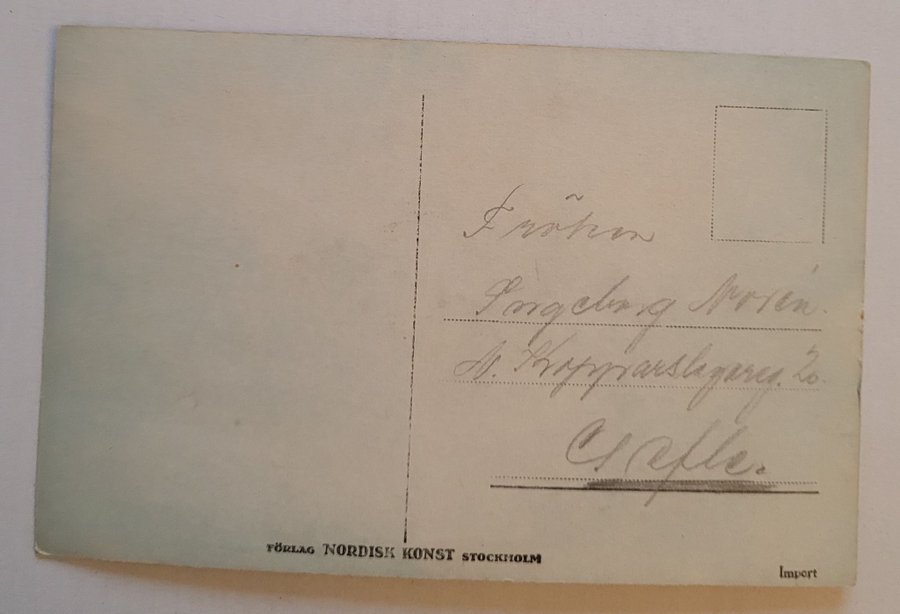 Fröken
Ingeborg Norén.
N. Kopparslagareg. 20
Gefle.
FÖRLAG NORDISK KONST STOCKHOLM
Import